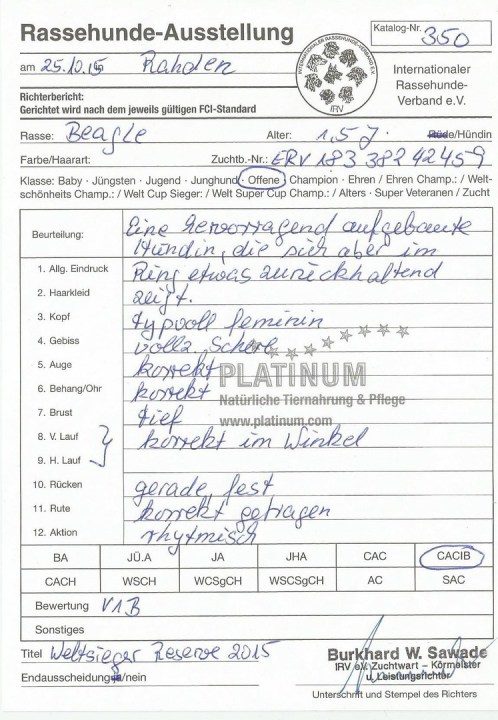 Rassehunde-Ausstellung
Katalog-Nr. 350
am 25.10.15 Rahden
INTERNATIONALER RASSEHUNDE-VERBAND e.V.
IRV
Internationaler
Rassehunde-
Verband e.V.
Richterbericht:
Gerichtet wird nach dem jeweils gültigen FCI-Standard
Rasse: Beagle Alter: 1,5 J. Rüde/Hündin
Farbe/Haarart: Zuchtb.-Nr.: ERV 183 382 42459
Klasse: Baby · Jüngsten · Jugend · Junghund · Offene · Champion · Ehren / Ehren Champ.: / Welt-
schönheits Champ.: / Welt Cup Sieger: / Welt Super Cup Champ.: / Alters · Super Veteranen / Zucht
Beurteilung: Eine hervorragend aufgebaute
Hündin, die sich aber im
1. Allg. Eindruck Ring etwas zurückhaltend
2. Haarkleid zeigt.
3. Kopf typvoll feminin
4. Gebiss vollz. Schere
5. Auge korrekt
PLATINUM
6. Behang/Ohr korrekt
Natürliche Tiernahrung & Pflege
7. Brust tief
www.platinum.com
8. V. Lauf korrekt im Winkel
9. H. Lauf
10. Rücken gerade, fest
11. Rute korrekt getragen
12. Aktion rhytmisch
BA JÜ.A JA JHA CAC CACIB
CACH WSCH WCSgCH WSCSgCH AC SAC
Bewertung V1B
Sonstiges
Titel Weltsieger Reserve 2015
Burkhard W. Sawade
IRV e.V. Zuchtwart – Körmeister
Endausscheidung ja/nein
u. Leistungsrichter
Unterschrift und Stempel des Richters